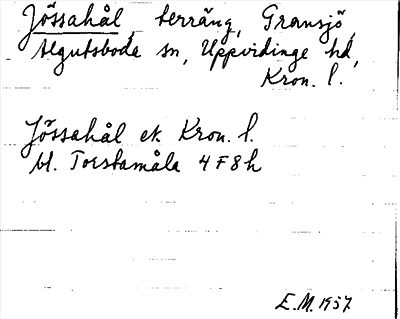 Jössahål, terräng, Gransjö,
Algutsboda sn, Uppvidinge hd,
Kron. l.
Jössahål ek Kron. l.
bl. Torstamåla 4 F 8 h
E.M. 1957.